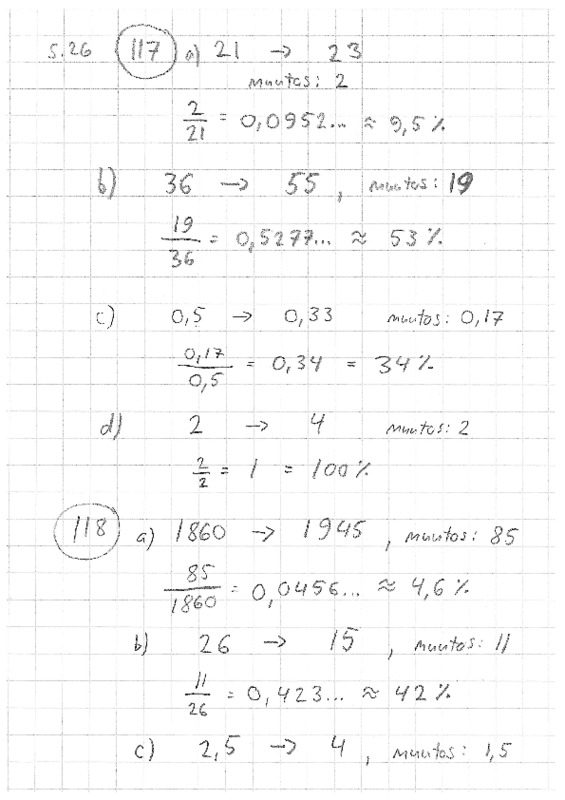 s.26 117 a) 21 → 23
muutos: 2
2/21 = 0,0952... ≈ 9,5 %
b) 36 → 55, muutos: 19
19/36 = 0,5277... ≈ 53 %
c) 0,5 → 0,33 muutos: 0,17
0,17/0,5 = 0,34 = 34 %
d) 2 → 4 muutos: 2
2/2 = 1 = 100 %
118 a) 1860 → 1945, muutos: 85
85/1860 = 0,0456... ≈ 4,6 %
b) 26 → 15, muutos: 11
11/26 = 0,423... ≈ 42 %
c) 2,5 → 4, muutos: 1,5